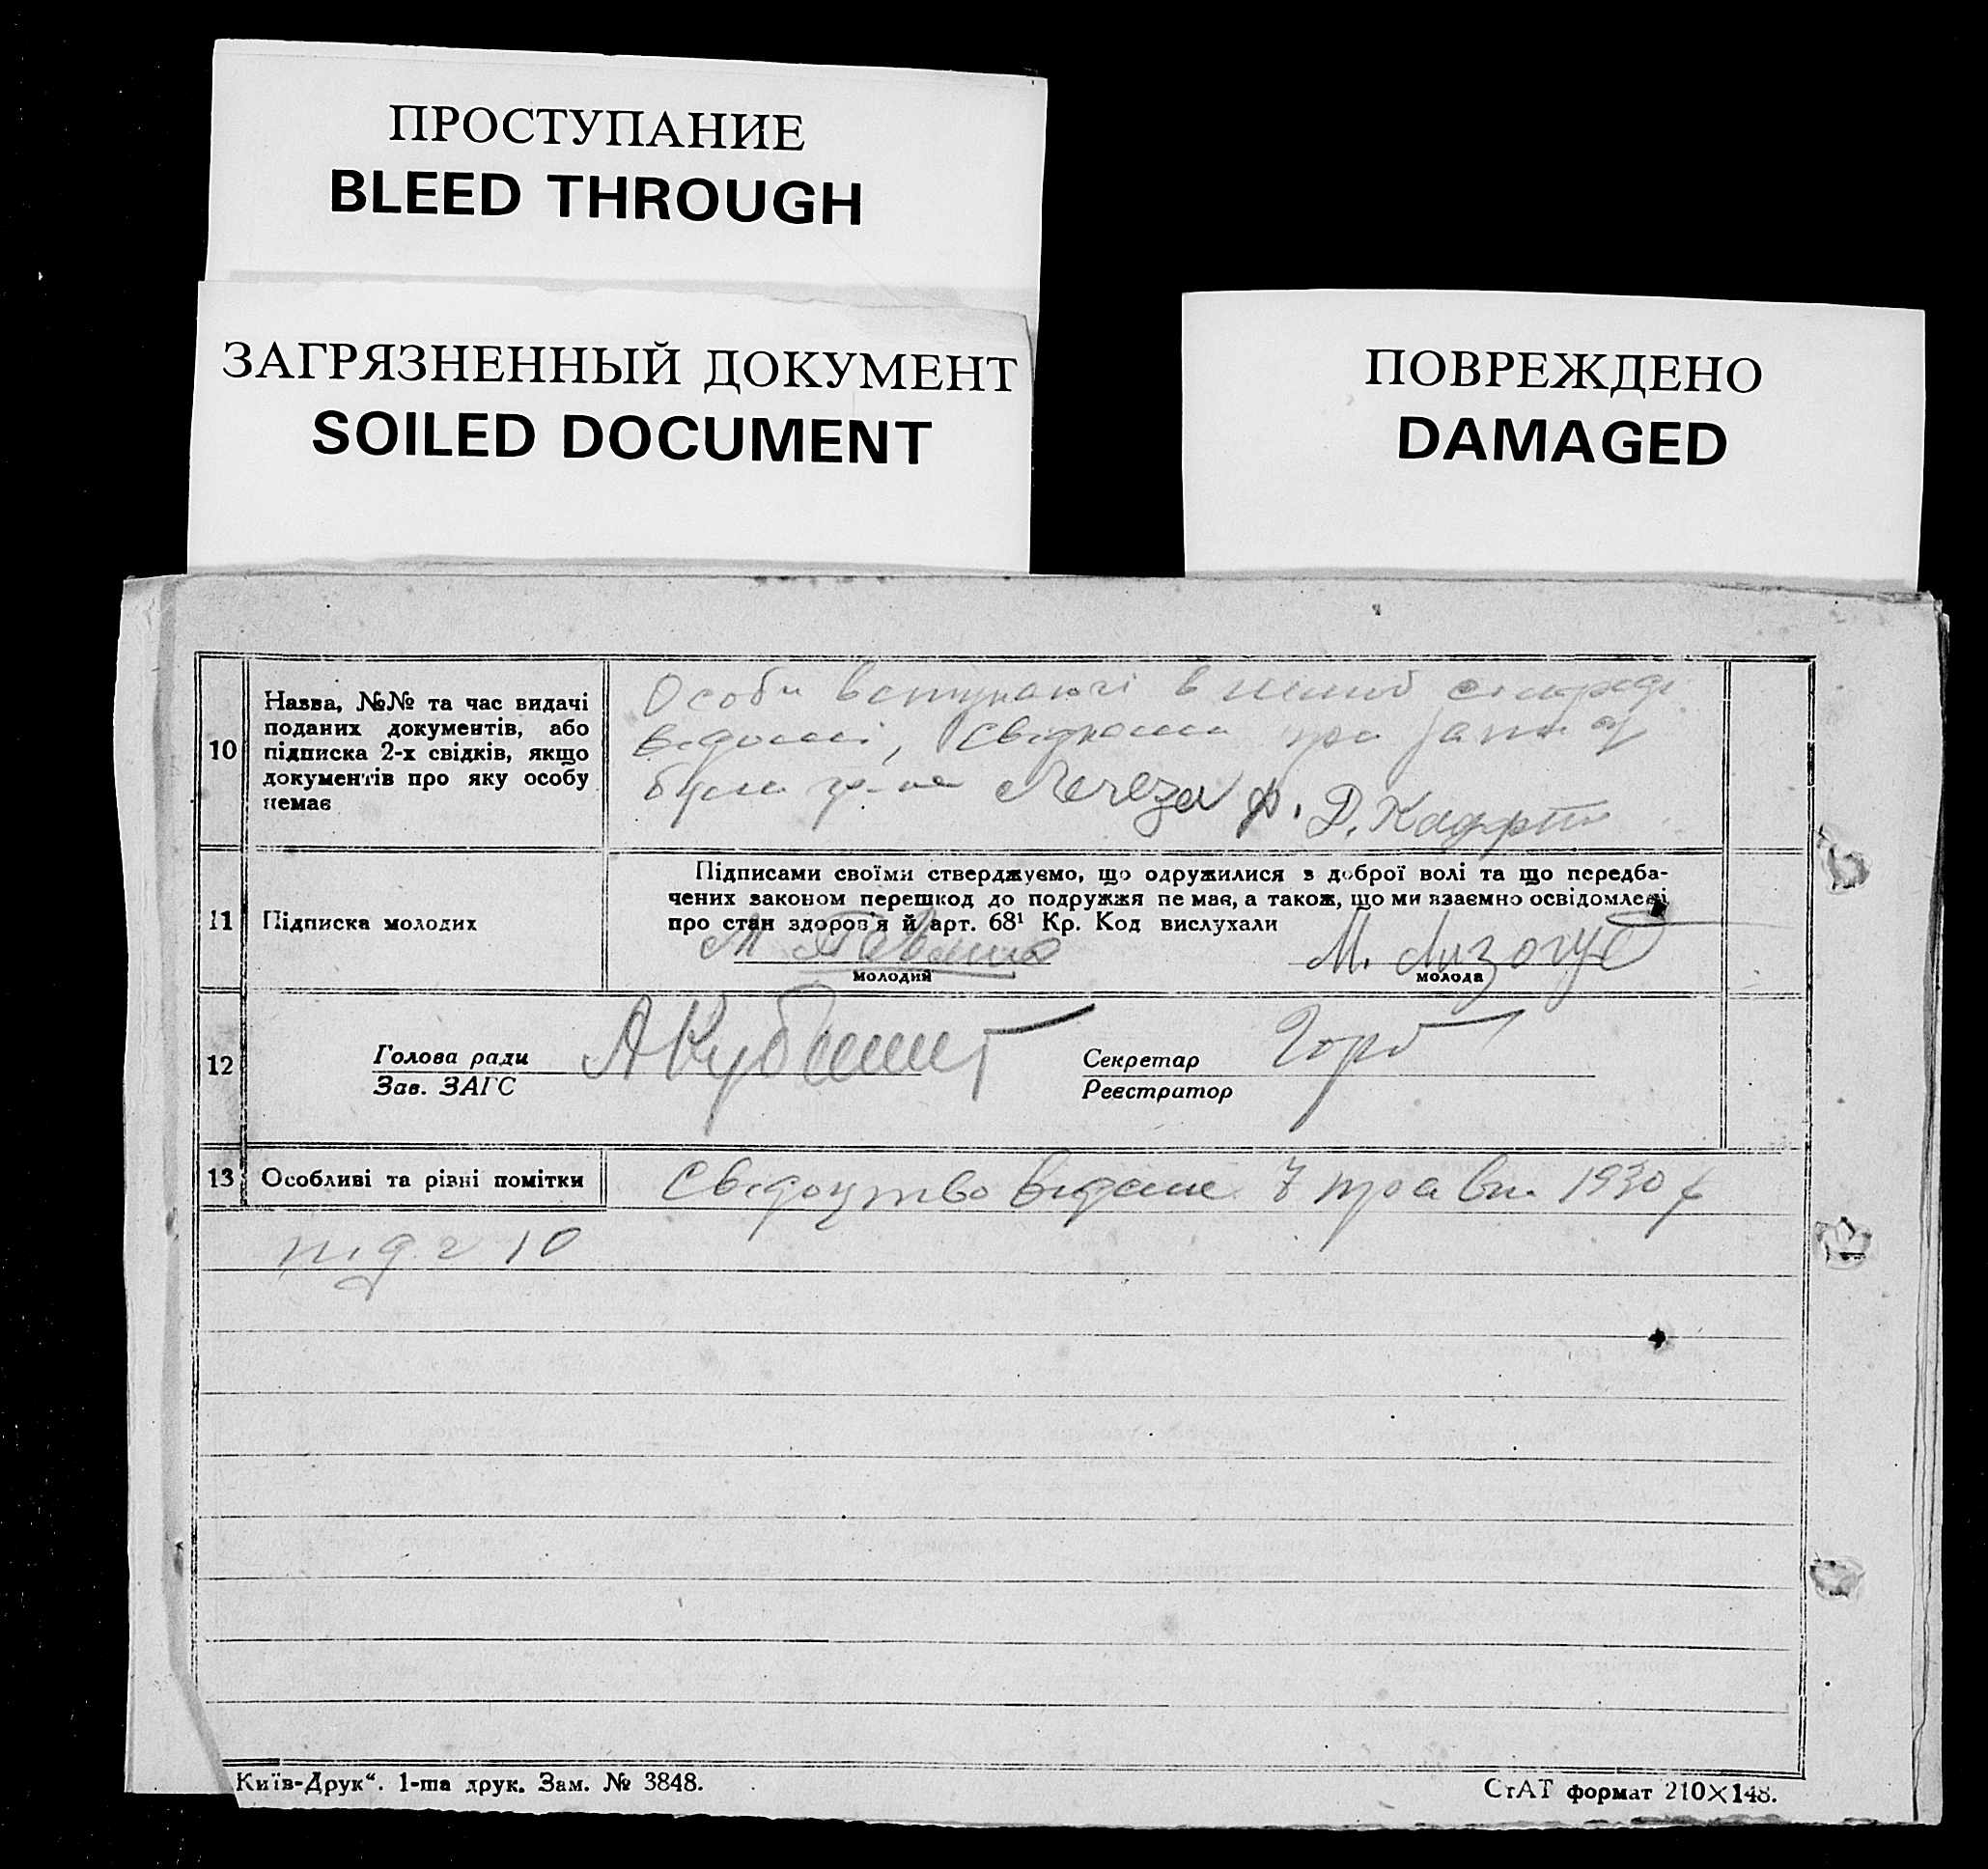 ПРОСТУПАНИЕ
BLEED THROUGH
ЗАГРЯЗНЕННЫЙ ДОКУМЕНТ
SOILED DOCUMENT
ПОВРЕЖДЕНО
DAMAGED
10
Назва, №№ та час видачі
поданих документів, або
підписка 2-х свідків, якщо
документів про яку особу
немає
Особи вступаючі в
відомі, свідками при
були гр-не Д.
11
Підписка молодих
Підписами своїми стверджуємо, що одружилися з доброї волі та що передба-
чених законом перешкод до подружжя не має, а також, що ми взаємно освідомлені
про стан здоров'я й арт. 68¹ Кр. Код вислухали
М.
М. Лизогуб
молодий
молода
12
Голова ради
Зав. ЗАГС
Секретар
Реєстратор
Горб
13
Особливі та різні помітки
Свідоцтво видане 7 травня 1930 р
під № 10
Київ-Друк“. 1-ша друк. Зам. № 3848.
СтАТ формат 210×148.